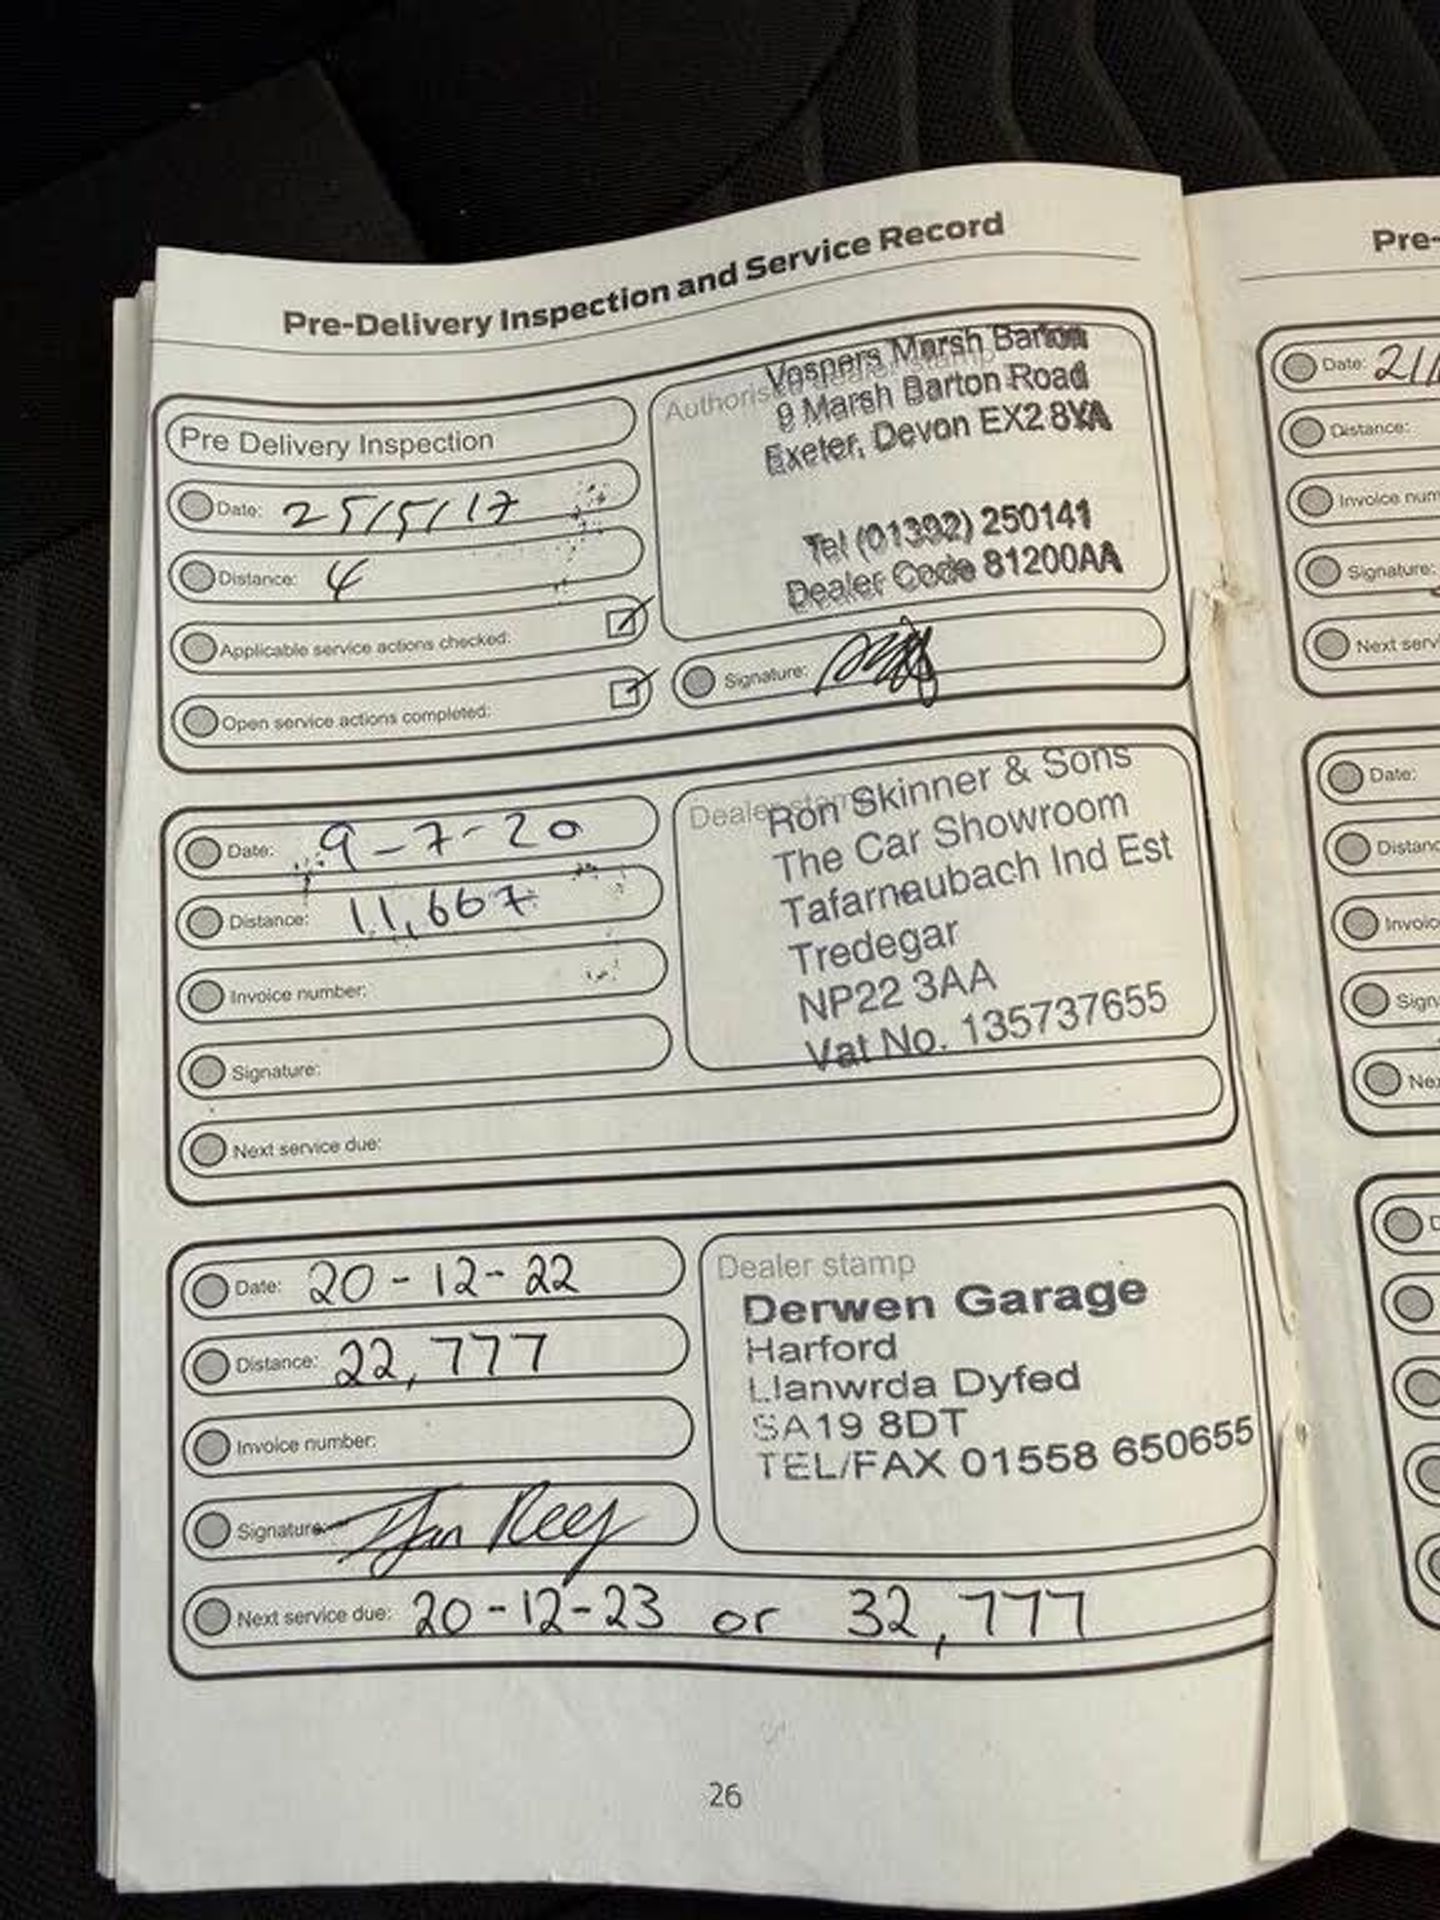 Pre-Delivery Inspection and Service Record
Pre Delivery Inspection
Date: 25/5/17
Distance: 4
Applicable service actions checked:
Open service actions completed:
Vospers Marsh Barton
9 Marsh Barton Road
Exeter, Devon EX2 8YA
Tel (01392) 250141
Dealer Code 81200AA
Signature:
Date: 9-7-20
Distance: 11,667
Invoice number:
Signature:
Next service due:
Dealer stamp
Ron Skinner & Sons
The Car Showroom
Tafarnaubach Ind Est
Tredegar
NP22 3AA
Vat No. 135737655
Date: 20-12-22
Distance: 22,777
Invoice number:
Signature:
Next service due: 20-12-23 or 32,777
Dealer stamp
Derwen Garage
Harford
Llanwrda Dyfed
SA19 8DT
TEL/FAX 01558 650655
26
Pre-
Date: 21/
Distance:
Invoice num
Signature:
Next serv
Date:
Distanc
Invoic
Sign
Nex
D